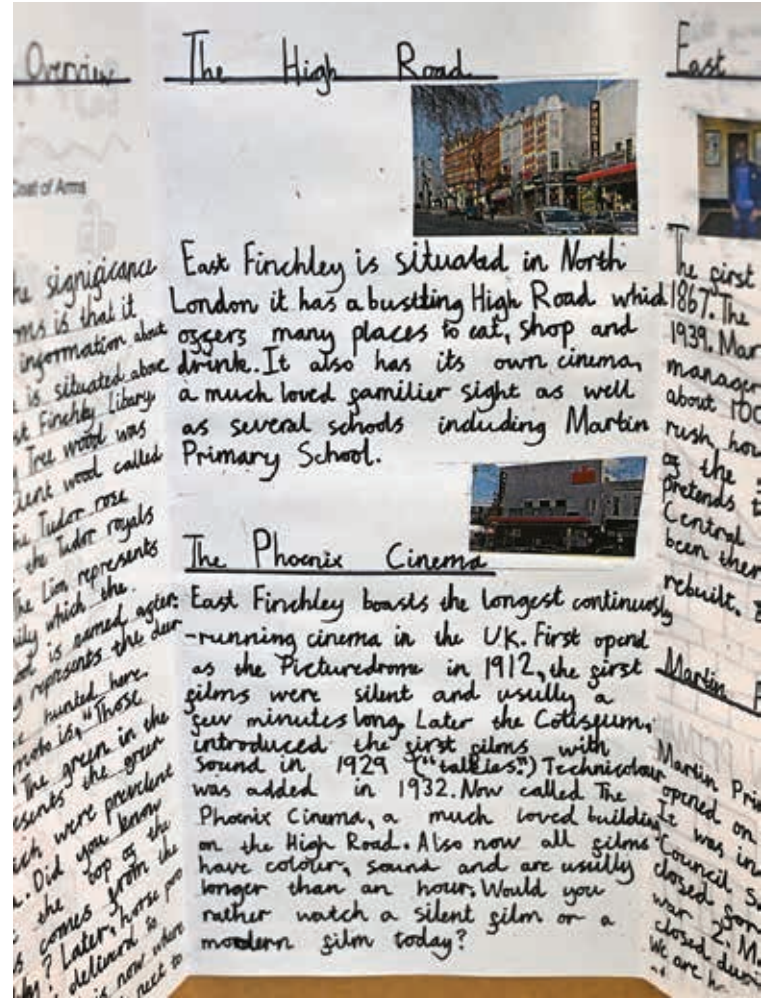 Overview
Coat of Arms
he significance
ms is that it
information about
is situated above
st Finchley Libary.
Tree wood was
ient wood called
he Tudor rose
the Tudor royals
The Lion represents
ily which the
is named after.
represents the deer
hunted here.
moto is, "Those
The green in the
esents the green
ich were prevelent
. Did you know
the top of the
s comes from the
? Later, horse poo
delivered to
is now where
next to
The High Road
PHOENIX
East Finchley is situated in North
London it has a bustling High Road which
offers many places to eat, shop and
drink. It also has its own cinema,
a much loved familier sight as well
as several schools including Martin
Primary School.
The Phoenix Cinema
East Finchley boasts the longest continuosly
-running cinema in the UK. First opend
as the Picturedrome in 1912, the first
films were silent and usully a
few minutes long. Later the Coliseum,
introduced the first films with
sound in 1929 ("talkies.") Technicolour
was added in 1932. Now called The
Phoenix Cinema, a much loved building
on the High Road. Also now all films
have colour, sound and are usully
longer than an hour. Would you
rather watch a silent film or a
modern film today?
East
The first
1867. The
1939. Mar
manager
about 100
rush, hou
of the s
pretends t
Central
been ther
rebuilt.
Martin P
Martin Prim
opened on
It was in
Council S
closed for
war 2. M
closed duri
We are h